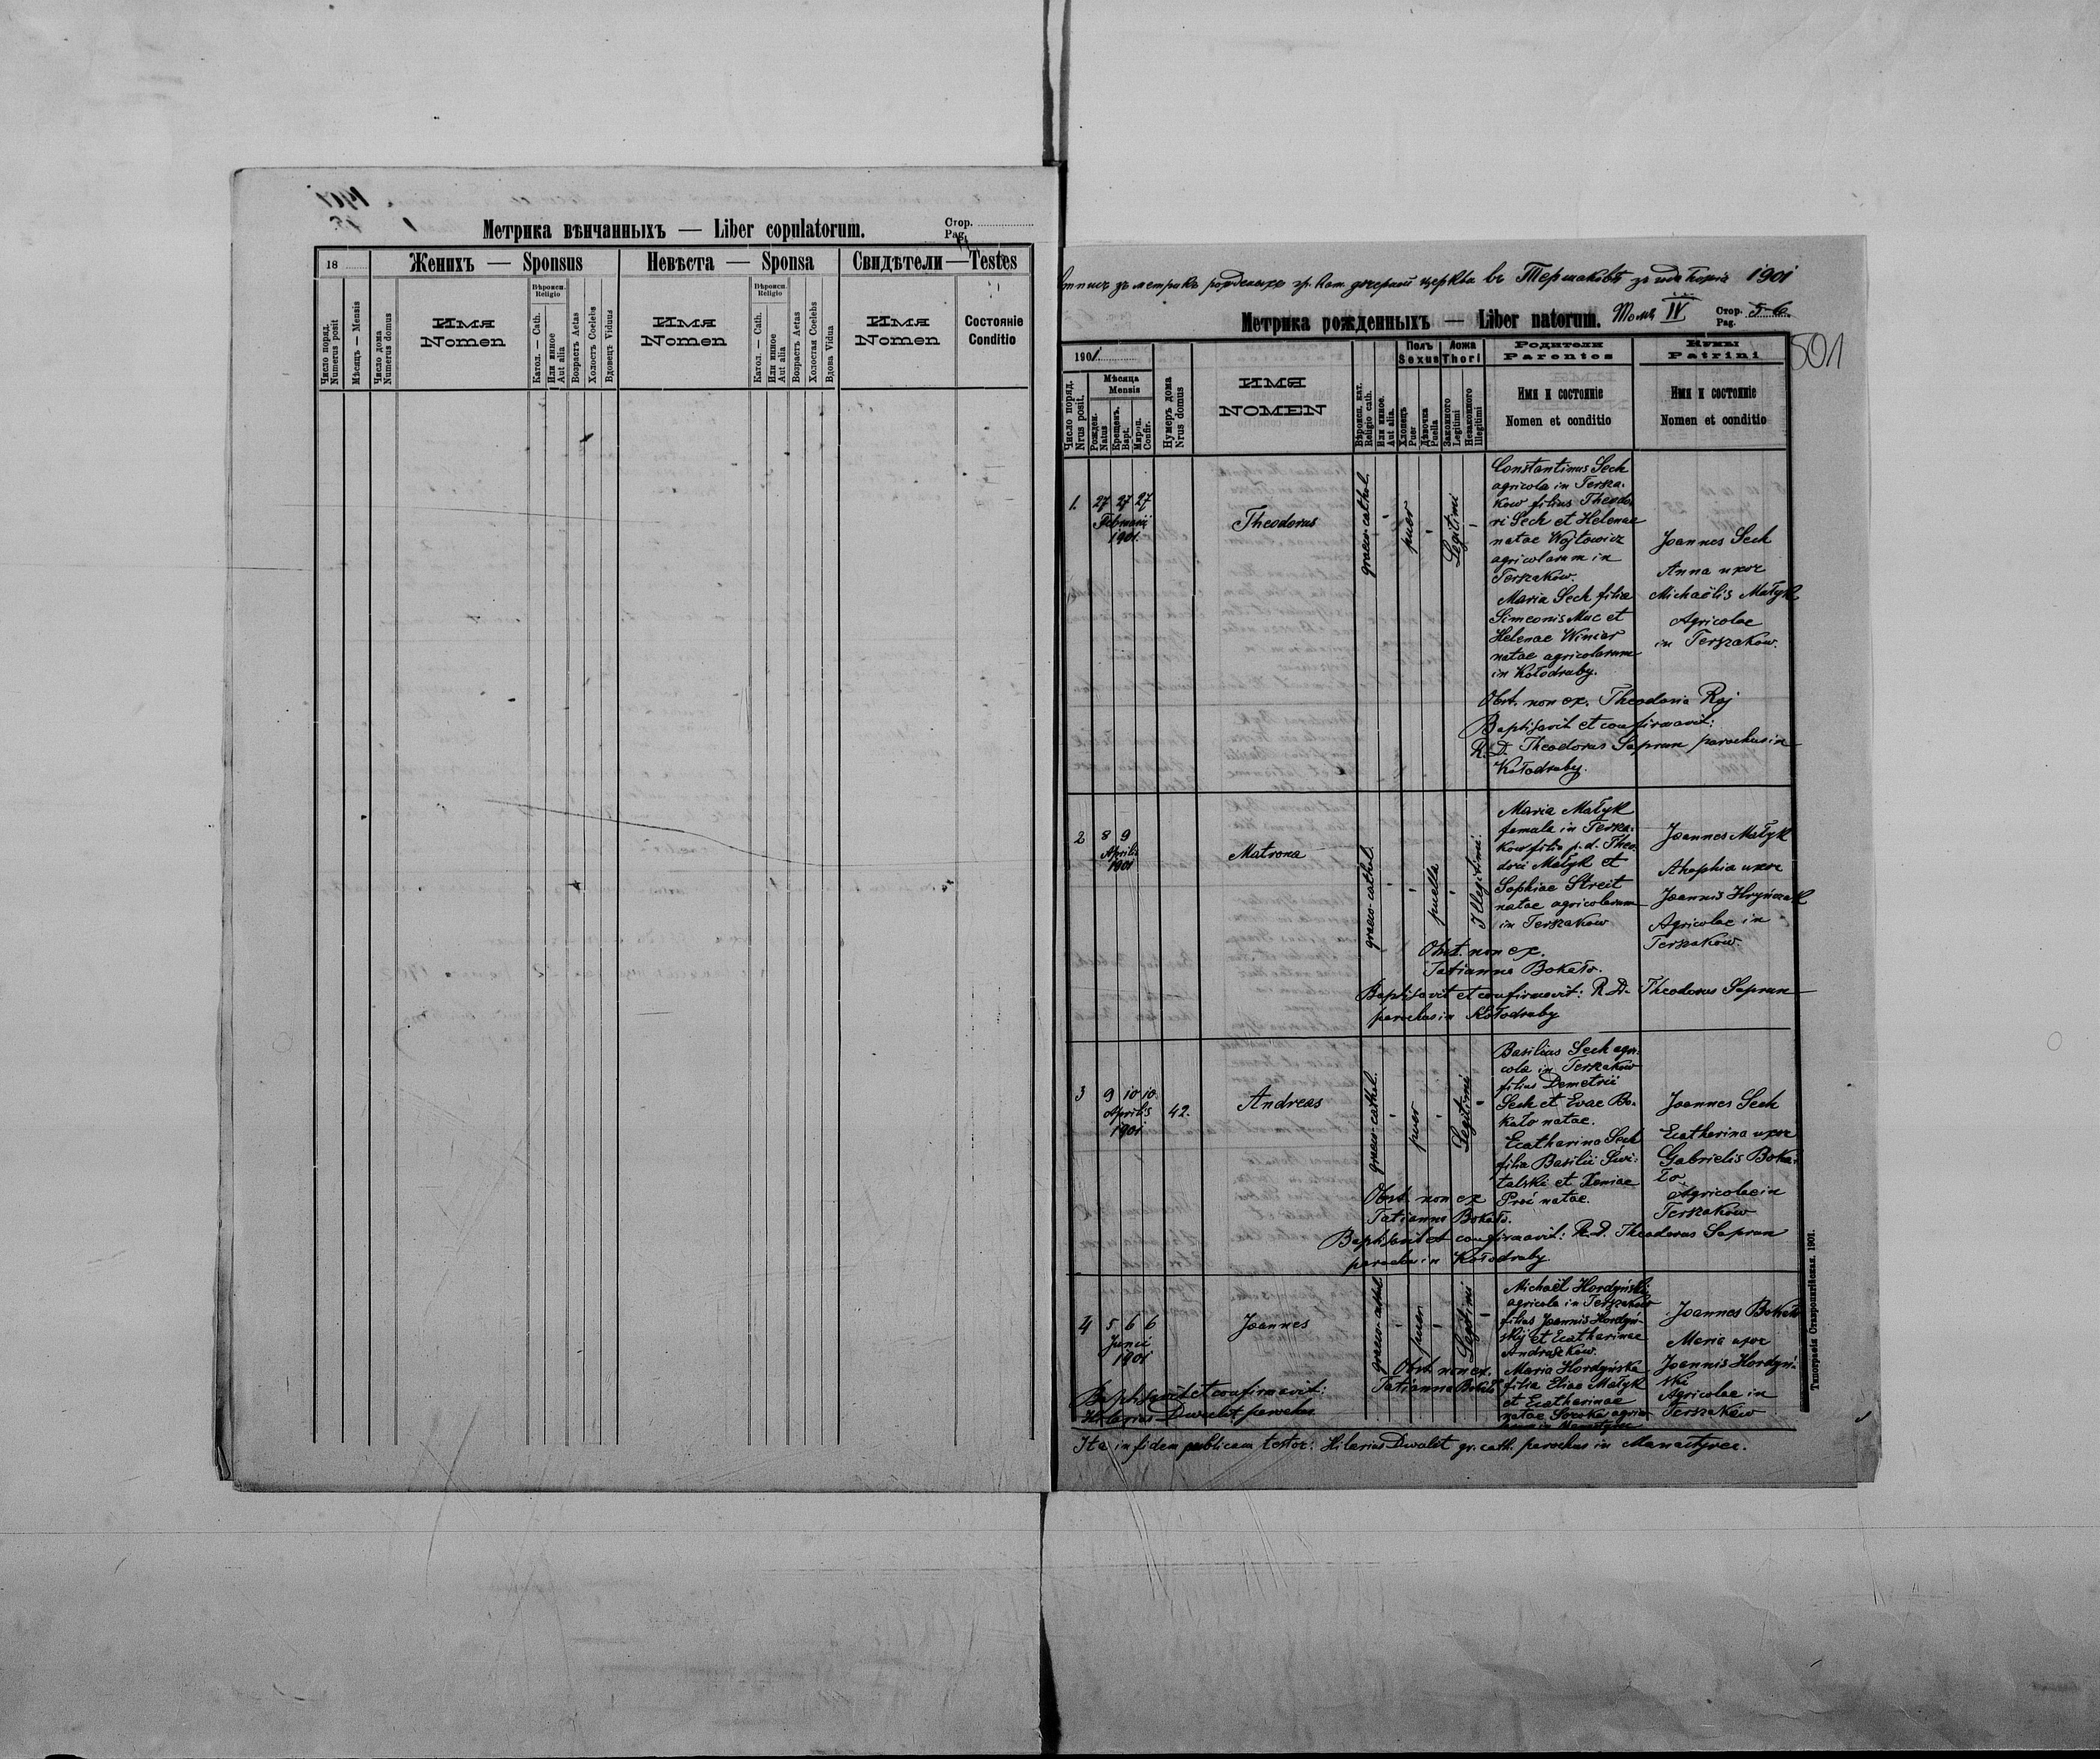 Метрика вѣнчанныхъ — Liber copulatorum.
Стор.
Pag.
18
Женихъ — Sponsus
Невѣста — Sponsa
Свидѣтели — Testes
Число поряд.
Numerus posit
Мѣсяцъ — Mensis
Число дома
Numerus domus
Имя
Nomen
Вѣроисп.
Religio
Катол. — Cath.
Или иное
Aut alia
Возрастъ Aetas
Холостъ Coelebs
Вдовецъ Viduus
Имя
Nomen
Вѣроисп.
Religio
Катол. — Cath.
Или иное
Aut alia
Возрастъ Aetas
Холостая Coelebs
Вдова Vidua
Имя
Nomen
Состояніе
Conditio
зъ метрикъ рожденыхъ гр. кат. дочерной церкви въ Тершаковѣ 1901
Метрика рожденныхъ — Liber natorum. Томъ IV
Стор. 5-6.
Pag.
501
1901
Число поряд.
Nrus posit.
Мѣсяца
Mensis
Рожден.
Natus
Крещенъ.
Bapt.
Мироп.
Confir.
Нумеръ дома
Nrus domus
ИМЯ
NOMEN
Вѣроисп. кат.
Religio cath.
Или инное.
Aut alia.
Полъ
Sexus
Хлопецъ
Puer
Дѣвочка
Puella
Ложа
Thori
Законного
Legitimi
Незаконного
Illegitimi
Родители
Parentes
Имя и состояніе
Nomen et conditio
Кумы
Patrini
Имя и состояніе
Nomen et conditio
1. 27 27 27
Februarii
1901
Theodorus
graeco-cathol.
puer
Legitimi
Constantinus Sech
agricola in Tersza-
kow filius Theodo-
ri Sech et Helenae
natae Wojtowicz
agricolarum in
Terszakow.
Maria Sech filia
Simeonis Muc et
Helenae Winiar
natae agricolarum
in Kołodruby.
Joannes Sech
Anna uxor
Michaëlis Małyk
Agricolae
in Terszakow.
Obst. non ex. Theodosia Raj
Baptisavit et confirmavit:
R. D. Theodorus Saprun parochus in
Kołodruby.
2 8 9
Aprilis
1901
Matrona
graeco-cathol.
puella
Illegitimi.
Maria Małyk
famula in Tersza-
kow filia p. d. Theo-
dori Małyk et
Sophiae Streit
natae agricolarum
in Terszakow
Joannes Małyk
Ahaphia uxor
Joannis Hryńczak
Agricolae in
Terszakow.
Obst. non ex.
Tatianna Bokało.
Baptisavit et confirmavit: R. D. Theodorus Saprun
parochus in Kołodruby
3 9 10 10.
Aprilis
1901
42.
Andreas
graeco-cathol.
puer
Legitimi
Basilius Sech agri-
cola in Terszakow
filius Demetrii
Sech et Evae Bo-
kało natae.
Ecatharina Sech
filia Basilii Świ-
talski et Xeniae
natae.
Joannes Sech
Ecatharina uxor
Gabrielis Boka-
ło.
Agricolae in
Terszakow
Obst. non ex
Tatianna Bokało.
Baptisavit et confirmavit: R. D. Theodorus Saprun
parochus in Kołodruby
4 5 6 6
Junii
1901
Joannes
graeco-cathol
puer
Legitimi
Michaël Hordyński
agricola in Terszakow
filius Joannis Hordyń-
skij et Ecatharinae
Andraszkow.
Maria Hordyńska
filia Eliae Małyk
et Ecatharinae
natae
Joannes Bokało
Maria uxor
Joannis Hordyń-
ski
Agricolae in
Terszakow
Obst. non ex.
Tatianna Bokało
Baptisavit et confirmavit:
Hilarius Dwulit parochus
Ita in fidem publicam testor: Hilarius Dwulit gr. cath. parochus in Manastyrec.
Типографія Ставропигійская. 1901.